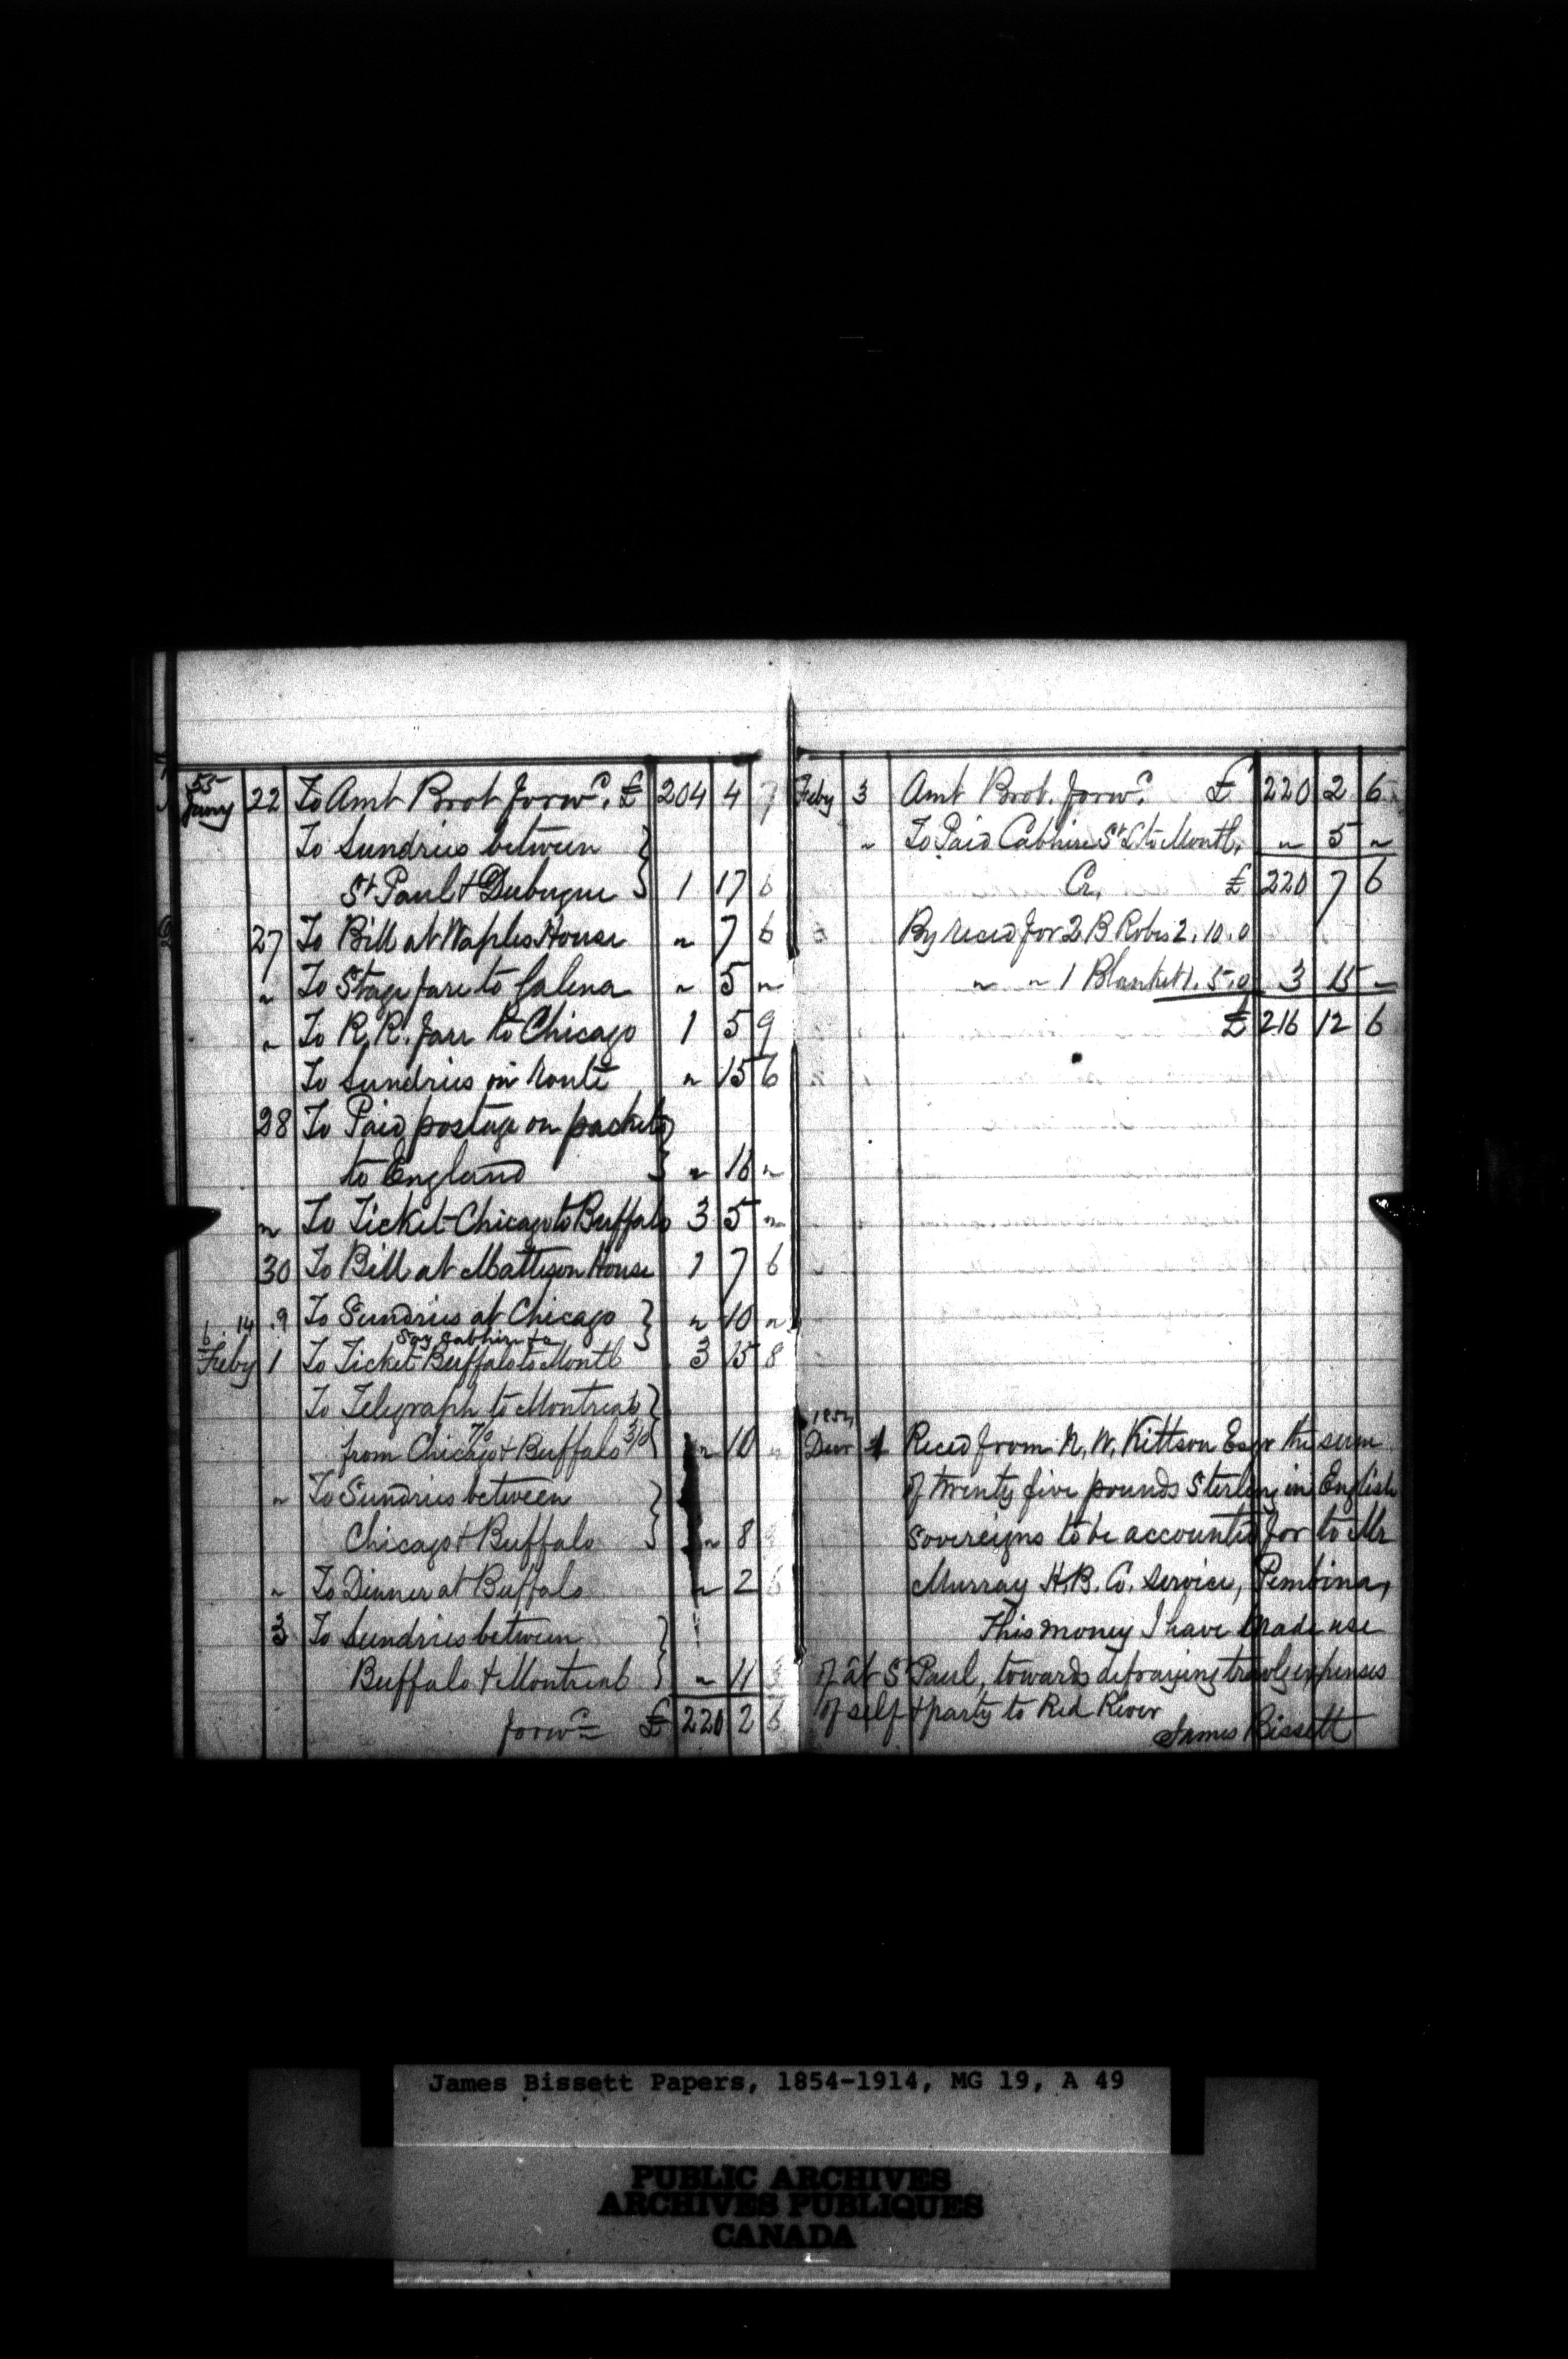 55
Jany 22 To Amt Brot forwd. £ 204 4 7
To Sundries between
St Paul & Dubuque } 1 17 6
27 To Bill at Waples House " 7 6
" To Stage fare to Galena " 5 "
" To R.R. fare to Chicago 1 5 9
To Sundries on route " 15 6
28 To Paid postage on packets
to England } " 16 "
" To Ticket Chicago to Buffalo 3 5 "
30 To Bill at Matteson House 1 7 6
To Sundries at Chicago } " 10 "
Say cabhire &c
Feby 1 To Ticket Buffalo to Montl 3 15 8
To Telegraph to Montreal
from Chicago 7/0 & Buffalo 3/0 } " 10 "
" To Sundries between
Chicago & Buffalo } " 8
" To Dinner at Buffalo " 2 6
3 To Sundries between
Buffalo & Montreal } " 11 3
forwd £ 220 2 6
Feby 3 Amt Brot. forwd. £ 220 2 6
" To Paid Cabhire St L to Montl. " 5 "
Cr. £ 220 7 6
By recd for 2 B Robes 2.10.0
" " 1 Blanket 1.5.0 3 15 "
£ 216 12 6
1854
Decr 1 Recd from N. W. Kittson Esqr the sum
of twenty five pounds Sterling in English
Sovereigns to be accounted for to Mr
Murray H.B. Co. Service, Pembina,
This money I have made use
of at St Paul, towards defraying travlg expenses
of self & party to Red River
James Bissett
James Bissett Papers, 1854-1914, MG 19, A 49
PUBLIC ARCHIVES
ARCHIVES PUBLIQUES
CANADA